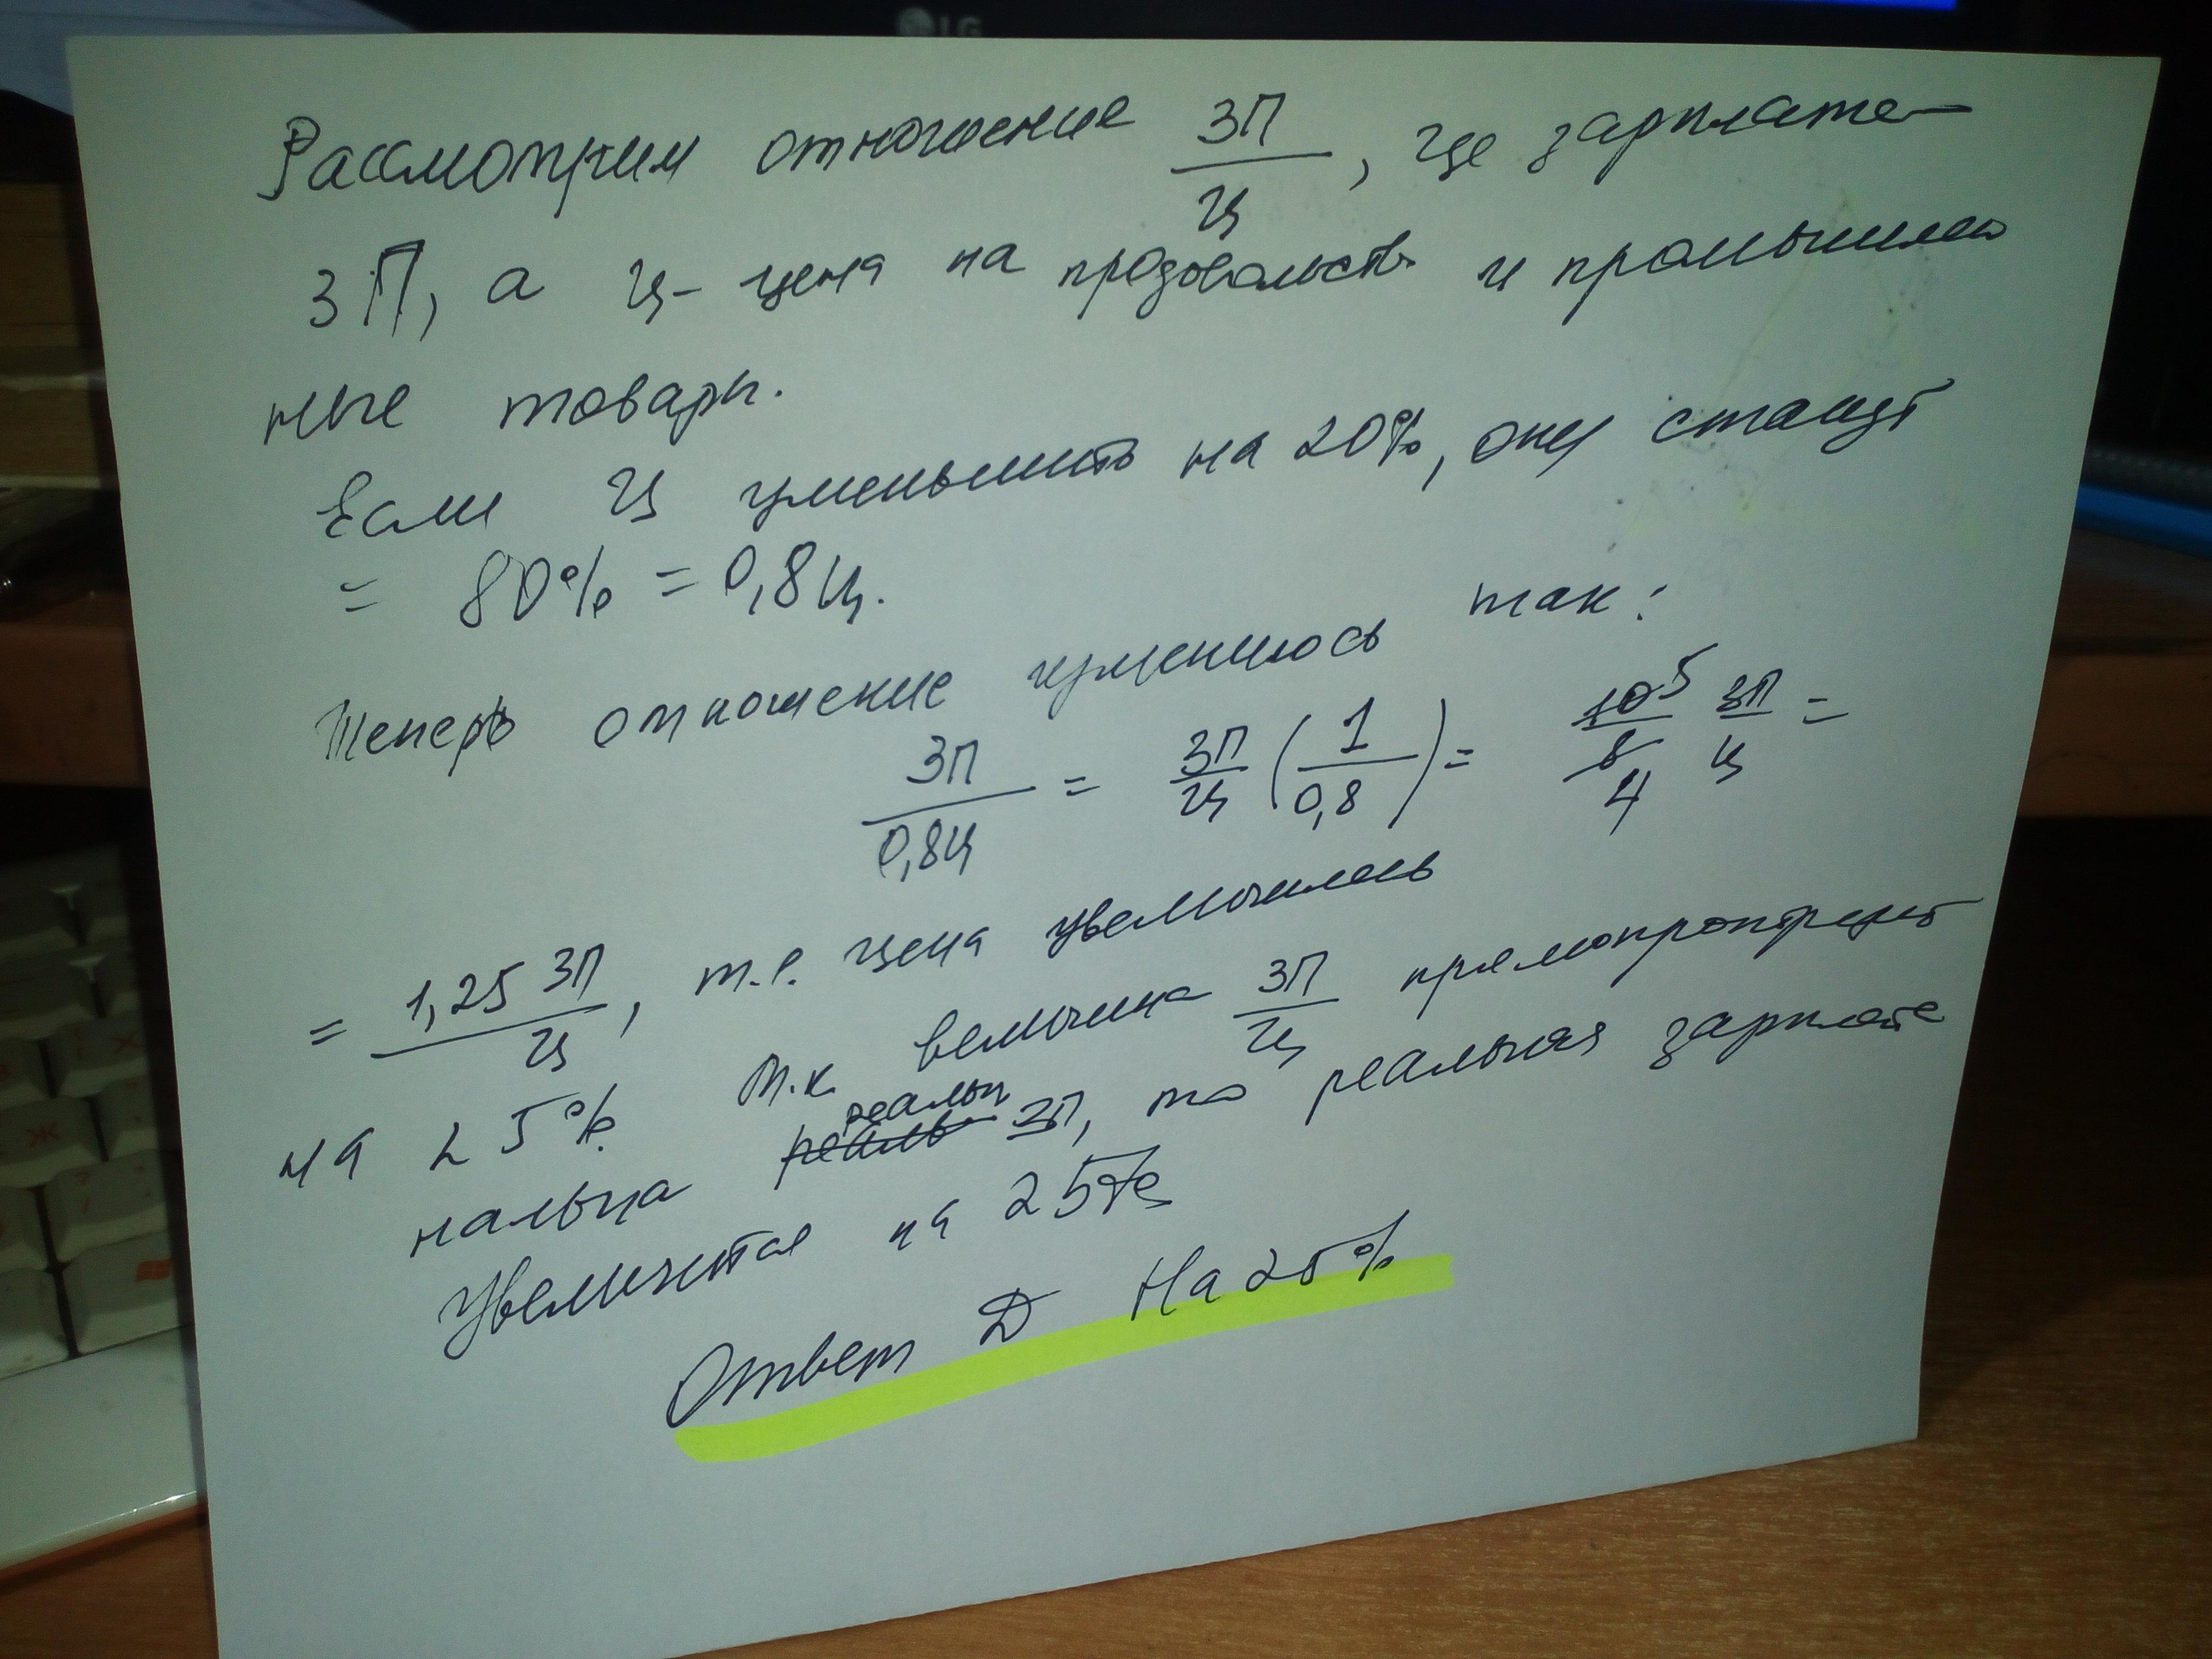 LG
Рассмотрим отношение ЗП/Ц, где зарплата –
ЗП, а Ц – цена на продовольств и промышлен
ные товары.
Если Ц уменьшить на 20%, они станут
= 80% = 0,8Ц.
Теперь отношение изменилось так:
ЗП/0,8Ц = ЗП/Ц (1/0,8) = 10 5/8 4 ЗП/Ц =
= 1,25 ЗП/Ц, т.е. цена увеличилась
на 25%. Т.к. величина ЗП/Ц прямопропорцио
нальна реальн ЗП, то реальная зарплата
увеличится на 25%
Ответ Д На 25%